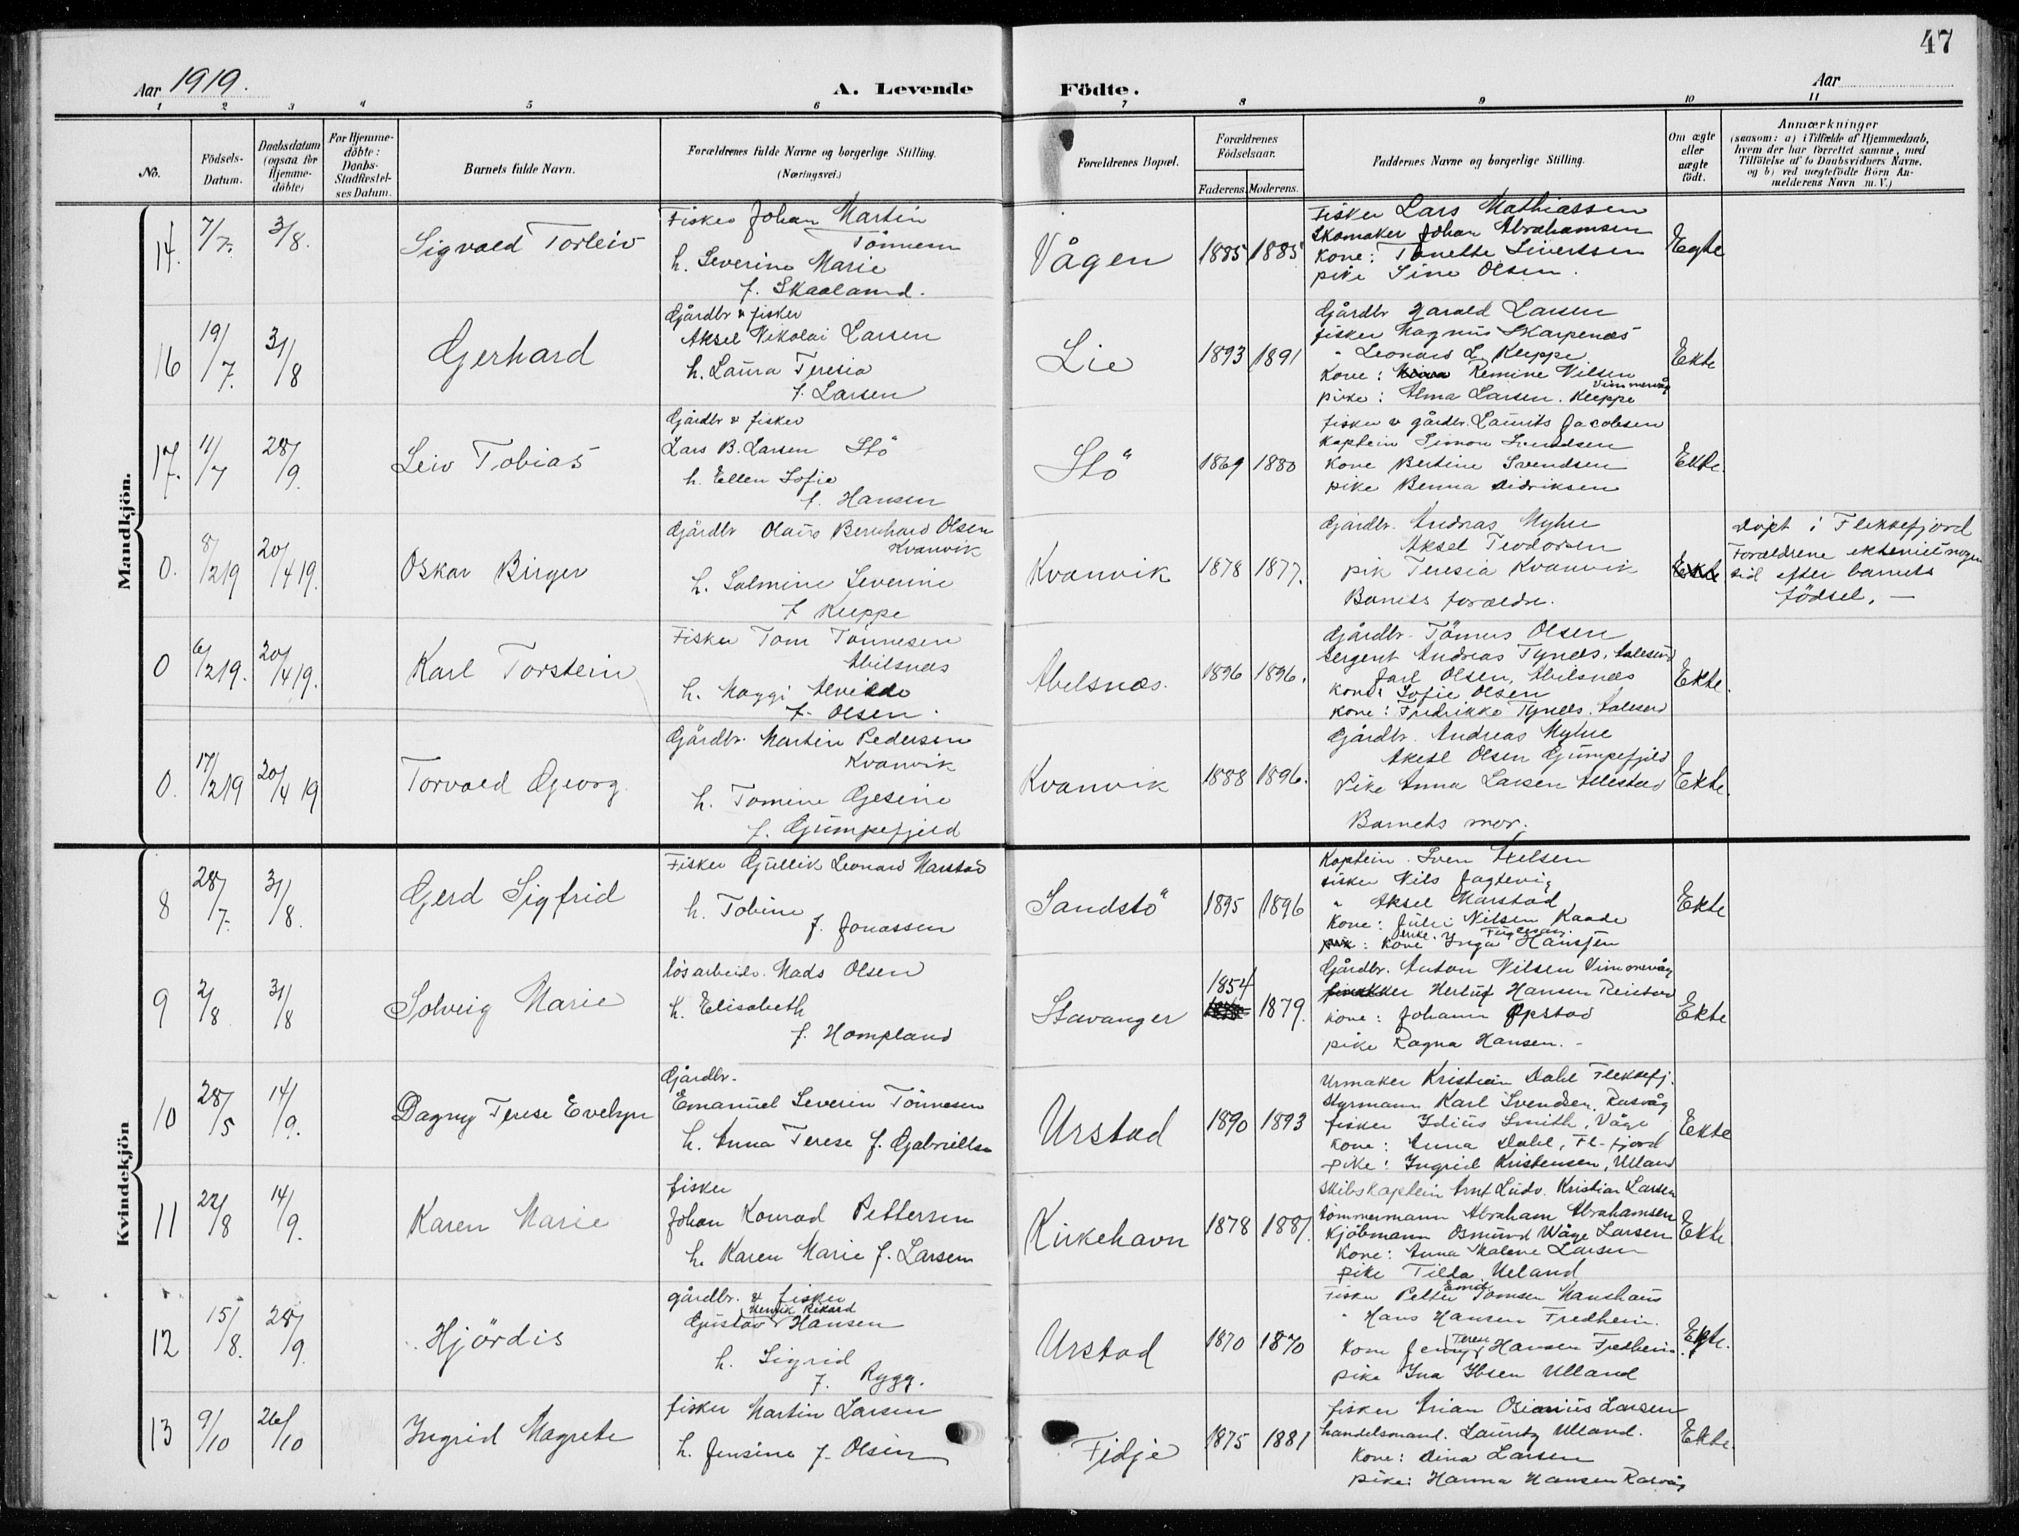 47
Aar 1919.
A. Levende
Födte.
Aar
1 2 3 4 5 6 7 8 9 10 11
No.
Födsels-Datum.
Daabsdatum (ogsaa for Hjemmedöbte)
For Hjemmedöbte: Daabs-Stadfæstelses Datum.
Barnets fulde Navn.
Forældrenes fulde Navne og borgerlige Stilling. (Næringsvei.)
Forældrenes Bopæl.
Forældrenes Födselsaar.
Faderens. Moderens.
Faddernes Navne og borgerlige Stilling.
Om ægte eller uægte födt.
Anmærkninger
(saasom: a) i Tilfælde af Hjemmedaab, hvem der har forrettet samme, med Tilföielse af to Daabsvidners Navne, og b) ved uægtefödte Börn Anmelderens Navn m. V.)
Mandkjön.
14. 7/7. 3/8. Sigvald Torleiv
Fisker Johan Martin
Tönnesen
h. Severine Marie
f. Skaaland.
Vågen 1885 1885
Fisker Lars Mathiassen
Skomaker Johan Abrahamsen
Kone: Tonette Sivertsen
pike Sine Olsen.
Egte
16 19/7. 31/8 Gerhard
Gårdbr & fisker
Aksel Nikolai Larsen
h. Laura Teresia
f. Larsen
Lie 1893 1891
Gårdbr Harald Larsen
fisker Magnus Skarpenæs
" Leonard L. Kleppe
Kone: Remine Nilsen
Vimmervåg
pike: Alma Larsen. Kleppe
Ekte
17. 11/7 28/9. Leiv Tobias
Gårdbr & fisker
Lars B. Larsen Stö
h. Ellen Sofie
f. Hansen
Stö 1869 1880
fisker & gårdbr. Laurits Jacobsen
Kaptein Simon Svendsen
Kone Bertine Svendsen
pike Benna Didriksen
Ekte.
0. 8/2 19 20/4 19. Oskar Birger
Gårdbr Olaus Bernhard Olsen
Kvanvik
h. Salmine Severine
f. Kleppe
Kvanvik 1878 1877.
Gårdbr. Andreas Myhre
Aksel Teodorsen
pik Teresia Kvanvik
Barnets foreldre.
Ekte
Döpt i Flekkefjord
Forældrene ekteviet nogen
tid efter barnets
födsel. —
0 6/2 19. 20/4 19. Karl Torstein
Fisker Tom Tönnesen
Abelsnæs
h. Maggi Alvilde
f. Olsen.
Abelsnæs. 1896 1896.
Gårdbr. Tönnes Olsen
Sergent Andreas Tynes. Aalesund
Jarl Olsen, Abelsnæs
kone: Sofie Olsen
Kone: Fredrikke Tynes. Aalesund
Ekte.
0. 17/2 19 20/4 19 Torvald Georg.
Gårdbr. Martin Pedersen
Kvanvik
h. Tomine Gesine
f. Gumpefjeld
Kvanvik 1888 1896.
Gårdbr. Andreas Myhre
Aksel Olsen Gumpefjeld
Pike Anna Larsen Allestad
Barnets mor.
Ekte.
Kvindekjön
8 28/7. 31/8. Gerd Sigfrid
Fisker Gullik Leonard Marstad
h. Tobine
f. Jonassen
Sandstö 1895 1896
Kaptein. Sven Axelsen
fisker Nils Jagtevig
" Aksel Marstad
Kone: Juli Nilsen Raade
: Kone Inga Hansen
Ekte
9 2/8 31/8 Solveig Marie
lösarbeid. Mads Olsen
h. Elisabeth
f. Hompland
Stavanger 1854 1879.
Gårdbr. Anton Nilsen Vimmervåg
Herluf Hansen Reistad
Kone: Johann Opstad
pike Ragna Hansen. -
Ekte
10 28/5 14/9. Dagny Terese Evelyn
Gårdbr.
Emanuel Severin Tönnesen
h. Anna Terese f. Gabrielsen
Urstad 1890 1893
Urmaker Kristian Dahl Flekkefj.
Styrmann Karl Svendsen. Rasvåg
fisker Idius Smith, Våge
Kone: Anna Dahl, Fl-fjord
pike: Ingrid Kristensen, Ulland
Ekte
11 22/8 14/9. Karen Marie
fisker
Johan Konrad Pettersen
h. Karen Marie f. Larsen
Kirkehavn 1878 1881.
Skibskaptein Arnt Ludv. Kristian Larsen
tömmermann Abraham Abrahamsen
Kjöbmann Osmund Wåge Larsen
Kone: Anna Malene Larsen
pike Tilda Ueland
Ekte.
12 15/8. 28/9. Hjördis
gårdbr. & fisker
Henrik Rikard
Gustav Hansen
h. Sigrid
f. Rygg.
Urstad 1870 1870
Emil
Fisker Petter Tomsen Hanshaus
" Hans Hansen Fredheim.
Terese
Kone Jenny Hansen Fredheim.
pike Ina Ibsen Ulland
Ekte.
13 9/10 26/10 Ingrid Magrete
fisker Martin Larsen
h. Jensine f. Olsen
Fidje 1875 1881
fisker Arian Osianius Larsen
handelsmand. Lauritz Ulland.
Kone: Dina Larsen
pike: Hanna Hansen Rasvåg
Ekte.